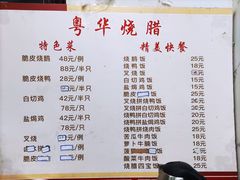 粤华烧腊
特色菜
脆皮烧鹅 48元/例
88元/半只
脆皮烧鸭 28元/例
元/半只
白切鸡 42元/半只
78元/只
盐焗鸡 42元/半只
78元/只
叉烧 元/例
元/例
脆皮 元/例
精美快餐
烧鹅饭 25元
烧鸭饭 18元
叉烧饭 元
白切鸡饭 18元
盐焗鸡饭 18元
脆皮 饭 元
叉烧拼烧鸭饭 25元
叉烧拼白切鸡饭 25元
叉烧拼盐焗鸡饭 25元
烧鸭拼白切鸡饭 25元
烧鸭拼盐焗鸡饭 25元
苦瓜牛肉饭 18元
萝卜牛腩饭 18元
饭 18元
酸菜牛肉饭 18元
烧腊四宝饭